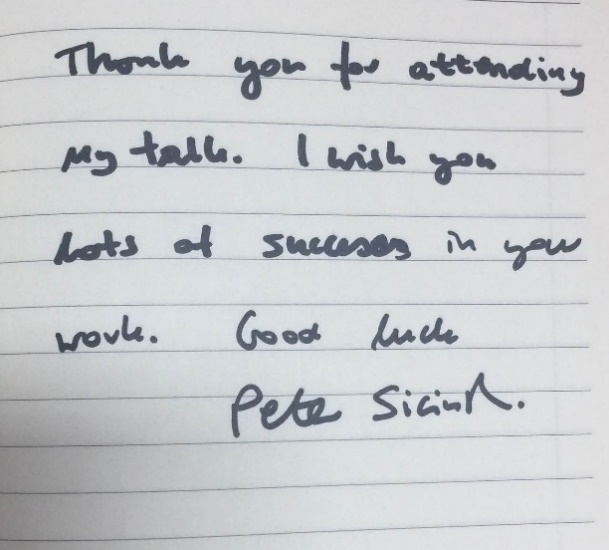 Thank you for attending
my talk. I wish you
lots of success in your
work. Good luck
Peter